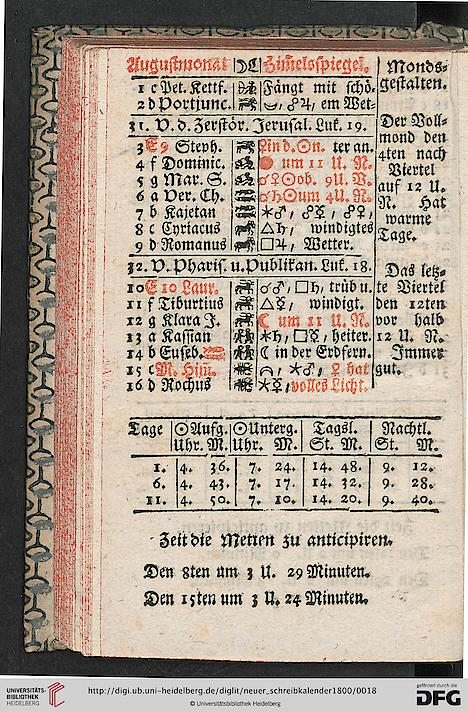 Augustmonat ☽☾ Him̅elsspiegel.
1 c Pet. Kettf. Fängt mit schö-
2 d Portjunc. ☍♃, em Wet-
31. V. d. Zerstör. Jerusal. Luk. 19.
3 E 9 Steph. ter an.
4 f Dominic. um 11 U. N.
5 g Mar. S. ☌♀☉ob. 9U. V.
6 a Ver. Ch. ☌♄☉um 4U. N.
7 b Kajetan
8 c Cyriacus △♄, windigtes
9 d Romanus □♃, Wetter.
32. V. Pharis. u. Publikan. Luk. 18.
10 E 10 Laur. ☌♂, □♄, trüb u.
11 f Tiburtius △☿, windigt.
12 g Klara J. ☾ um 11 U. N.
13 a Kassian ✶♄, □☿, heiter.
14 b Euseb. ☾ in der Erdfern.
15 c M. Him̅. ✶♂, ♀ hat
16 d Rochus ✶☿, volles Licht.
Monds-
gestalten.
Der Voll-
mond den
4ten nach
Viertel
auf 12 U.
N. Hat
warme
Tage.
Das letz-
te Viertel
den 12ten
vor halb
12 U. N.
Immer
gut.
Tage ☉Aufg. ☉Unterg. Tagsl. Nachtl.
Uhr. M. Uhr. M. St. M. St. M.
1. 4. 36. 7. 24. 14. 48. 9. 12.
6. 4. 43. 7. 17. 14. 32. 9. 28.
11. 4. 50. 7. 10. 14. 20. 9. 40.
Zeit die Metten zu anticipiren.
Den 8ten um 3 U. 29 Minuten.
Den 15ten um 3 U. 24 Minuten.
UNIVERSITÄTS-
BIBLIOTHEK
HEIDELBERG
http://digi.ub.uni-heidelberg.de/diglit/neuer_schreibkalender1800/0018
© Universitätsbibliothek Heidelberg
gefördert durch die
DFG